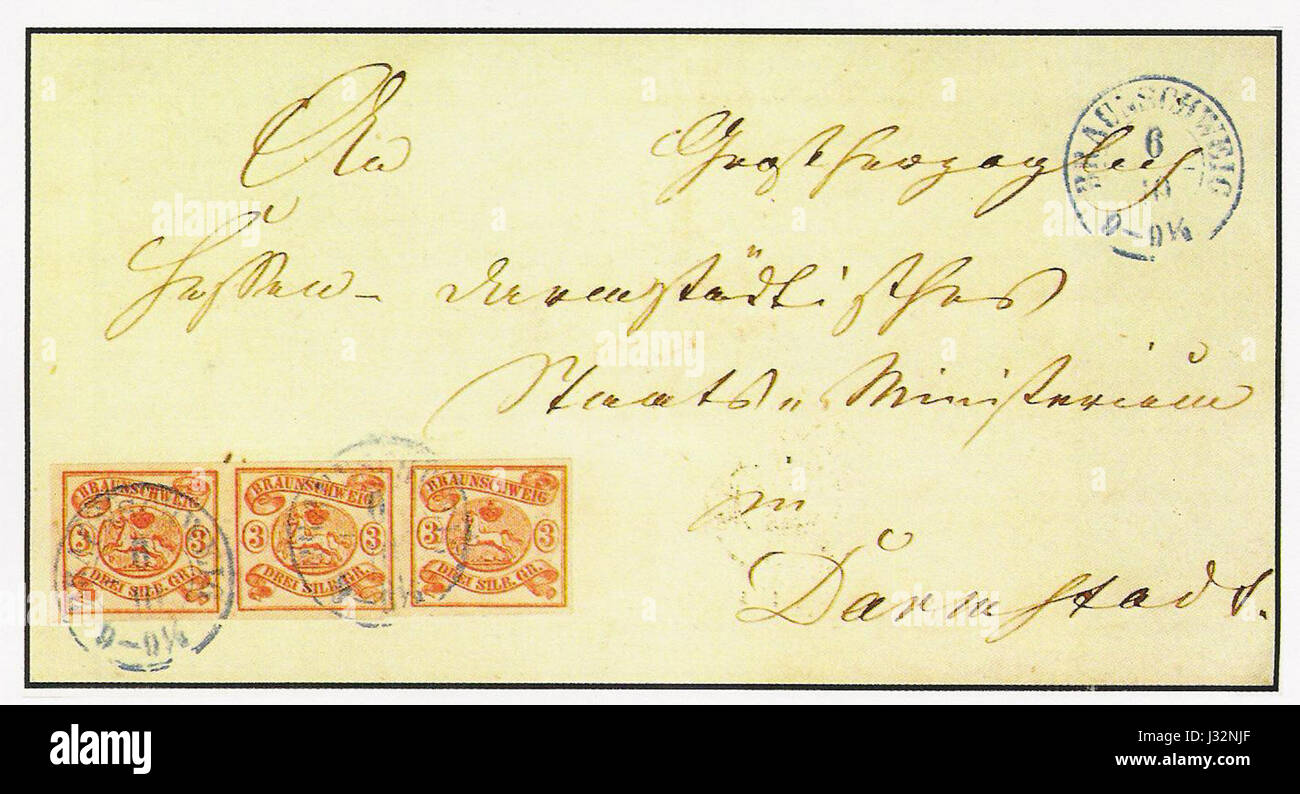 An Großherzoglich
BRAUNSCHWEIG
6
9-9¼
Hessen - darmstädtisches
Staats - Ministerium
in
Darmstadt.
BRAUNSCHWEIG
3 3
DREI SILB. GR.
BRAUNSCHWEIG
3 3
DREI SILB. GR.
BRAUNSCHWEIG
3 3
DREI SILB. GR.
alamy
alamy
Image ID: J32NJF
www.alamy.com